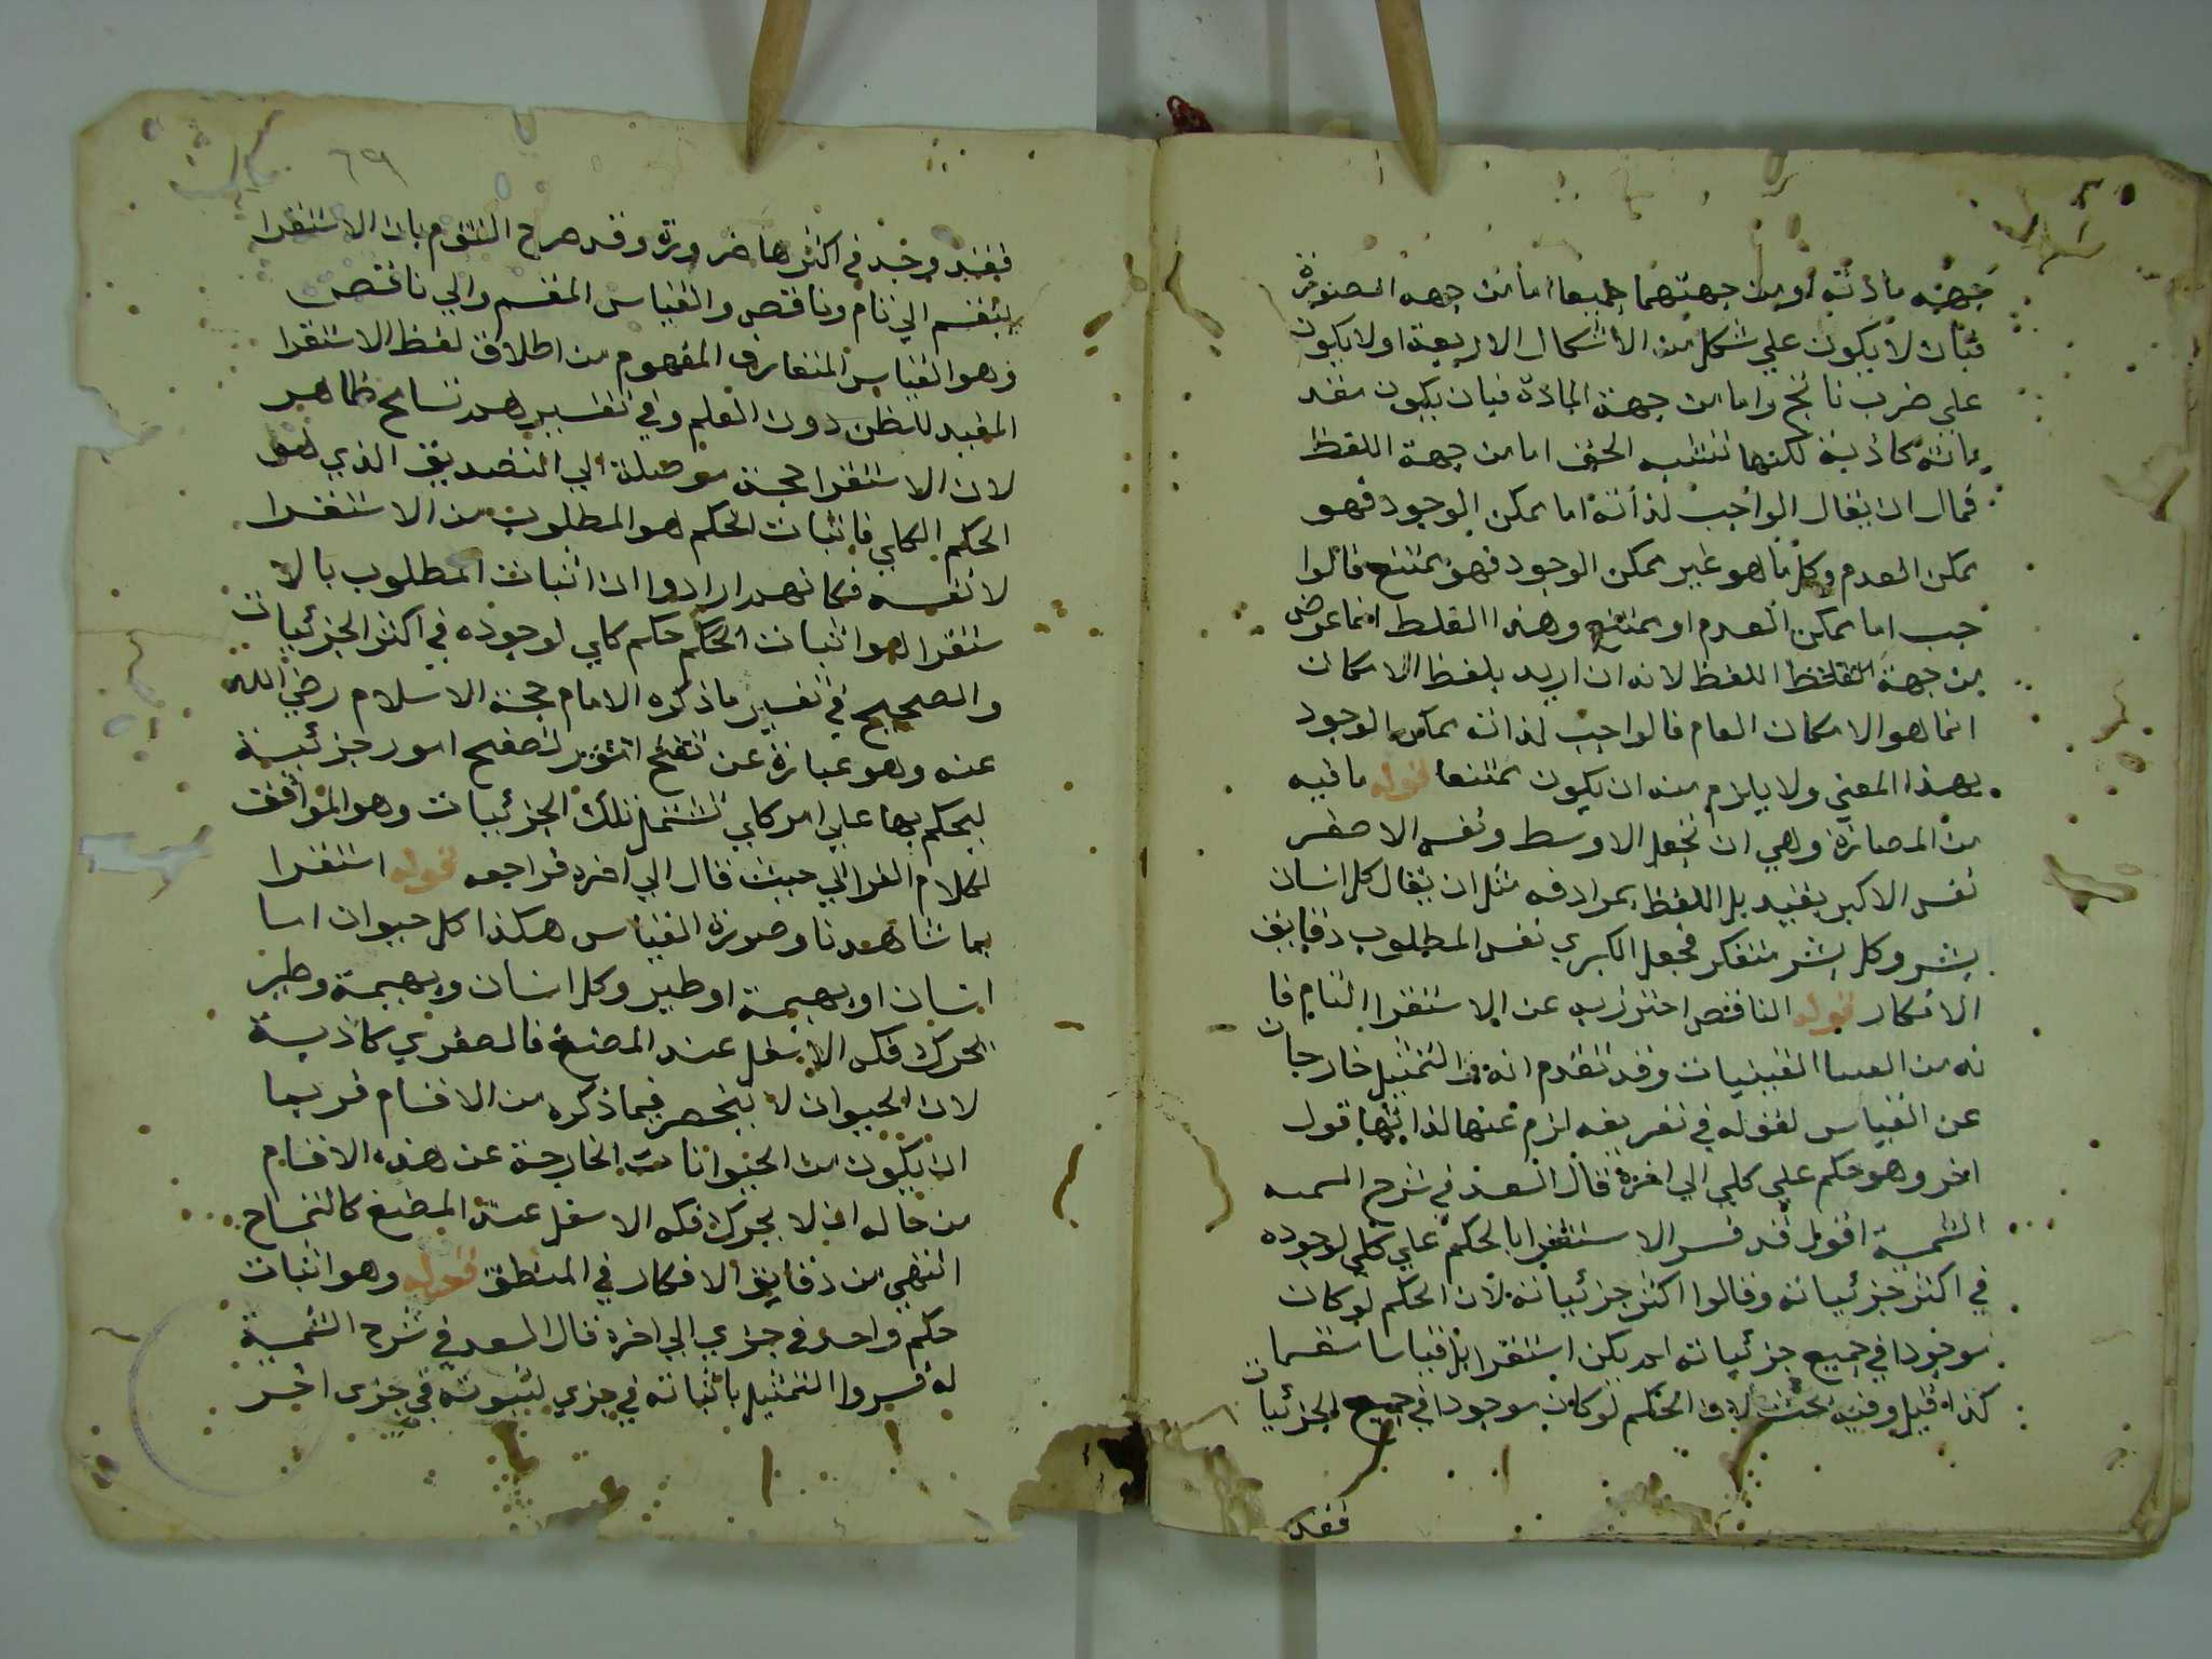 جهة مادته او من جهتهما جميعا اما من جهة الصورة
فبان لا يكون علي شكل من الاشكال الاربعة او لا يكون
علي ضرب ناتج واما من جهة المادة فبان يكون مقد
ماته كاذبة لكنها تشبه الحق اما من جهة اللفظ
فمال ان يقال الواجب لذاته اما ممكن الوجود فهو
ممكن العدم وكل ما هو غير ممكن الوجود فهو ممتنع فالوا
جب اما ممكن العدم او ممتنع وهذا الغلط انما عرض
من جهة اللفظ لانه ان اريد بلفظ الامكان
انما هو الامكان العام فالواجب لذاته ممكن الوجود
بهذا المعني ولا يلزم منه ان يكون ممتنعا قوله ما فيه
من المصادرة وهي ان نجعل الاوسط ونفس الاصغر
نفس الاكبر بقيد بل اللفظ بمرادفه مثل ان يقال كل انسان
بشر وكل بشر متفكر فجعل الكبري نفس المطلوب دقايق
الافكار قوله الناقص احترز به عن الاستقرا التام فا
نه من القياسات وقد تقدم انه والتمثيل خارجان
عن القياس لقوله في تعريفه لزم عنها لذاتها قول
اخر وهو حكم علي كلي الي اخره قال السعد في شرح السمسه
الشمسية اقول قد فسر الاستقرا بالحكم علي كلي لوجوده
في اكثر جزئياته وقالوا اكثر جزئياته لان الحكم لو كان
موجودا في جميع جزئياته لم يكن استقرا بل قياسا مقسما
كذا قيل وفيه بحث لان الحكم لو كان موجودا في جميع الجزئيات
فقد
٦٩
فقد وجد في اكثرها ضرورة وقد صرح القوم بان الاستقرا
ينقسم الي تام وناقص والقياس المقسم والي ناقص
وهو القياس المتعارف المفهوم من اطلاق لفظ الاستقرا
المفيد للظن دون العلم وفي تفسيرهم تسامح ظاهر
لان الاستقرا حجة موصلة الي التصديق الذي هو
الحكم الكلي فاثبات الحكم هو المطلوب من الاستقرا
لا نفسه فكانهم ارادوا ان اثبات المطلوب بالا
ستقرا هو اثبات الحكم حكم كلي لوجوده في اكثر الجزئيات
والصحيح في تفسير ما ذكره الامام حجة الاسلام رضي الله
عنه وهو عبارة عن تصفح امور جزئية
ليحكم بها علي امر كلي تشتمل تلك الجزئيات وهو الموافق
لكلام الفرابي حيث قال الي اخره فراجعه قوله استقرا
بما شاهدنا وصورة القياس هكذا كل حيوان اما
انسان او بهيمة او طير وكل انسان وبهيمة وطير
يحرك فكه الاسفل عند المضغ فالصغري كاذبة
لان الحيوان لا ينحصر فيما ذكره من الاقسام فربما
ان يكون من الحيوانات الخارجة عن هذه الاقسام
من حاله ان لا يحرك فكه الاسفل عند المضغ كالتمساح
انتهي من دقايق الافكار في المنطق قوله وهو اثبات
حكم واحد في جزي الي اخره قال السعد في شرح الشمسية
له فسروا التمثيل باثباته في جزي لثبوته في جزي اخر